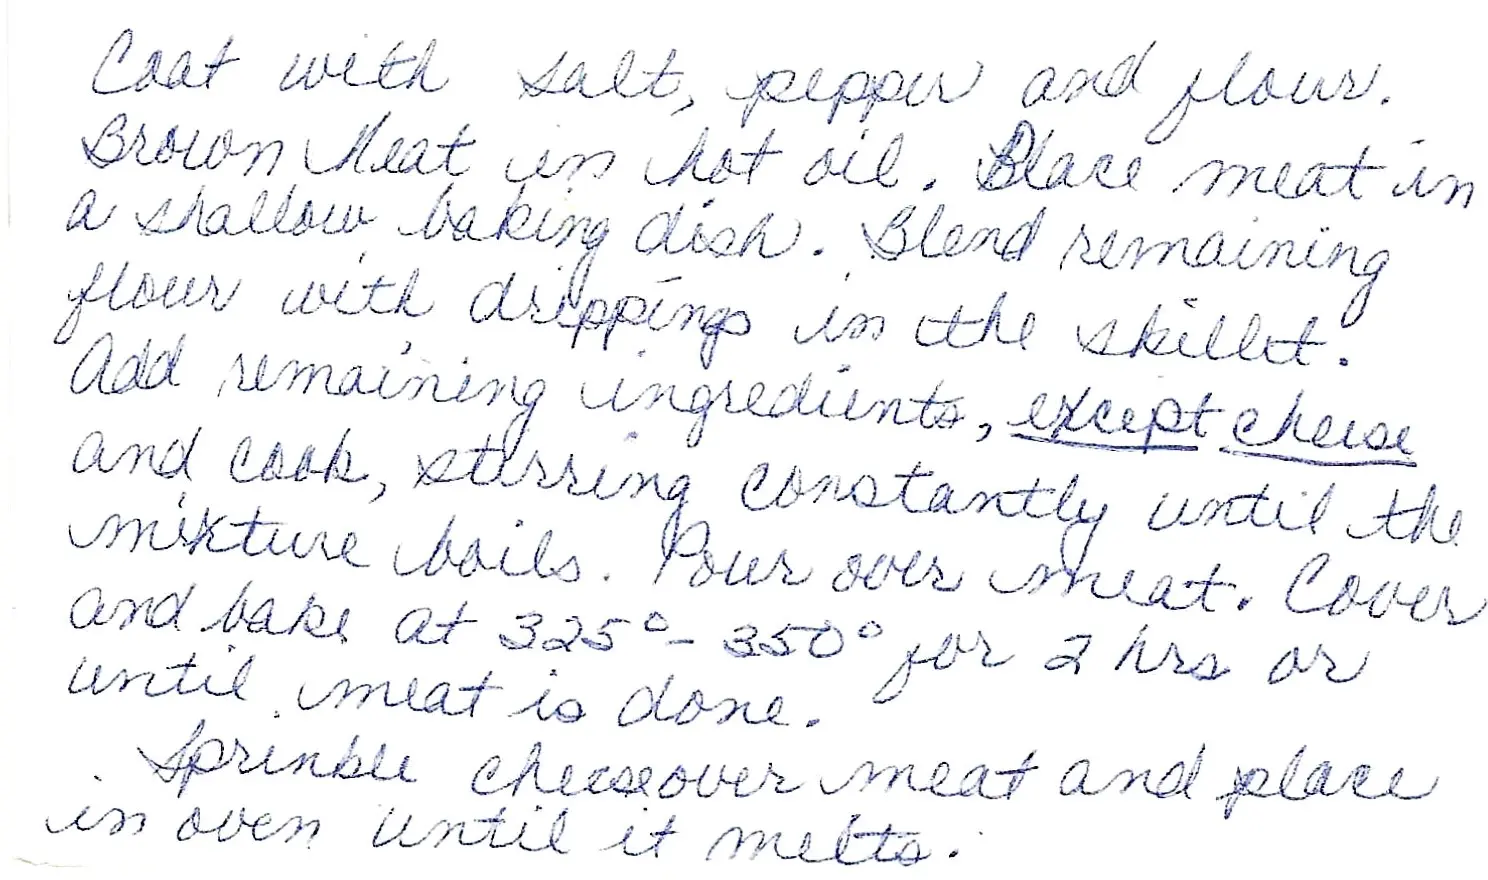 Coat with salt, pepper and flour.
Brown Meat in hot oil. Place meat in
a shallow baking dish. Blend remaining
flour with drippings in the skillet.
Add remaining ingredients, except cheese
and cook, stirring constantly until the
mixture boils. Pour over meat. Cover
and bake at 325°-350° for 2 hrs or
until meat is done.
Sprinkle cheese over meat and place
in oven until it melts.